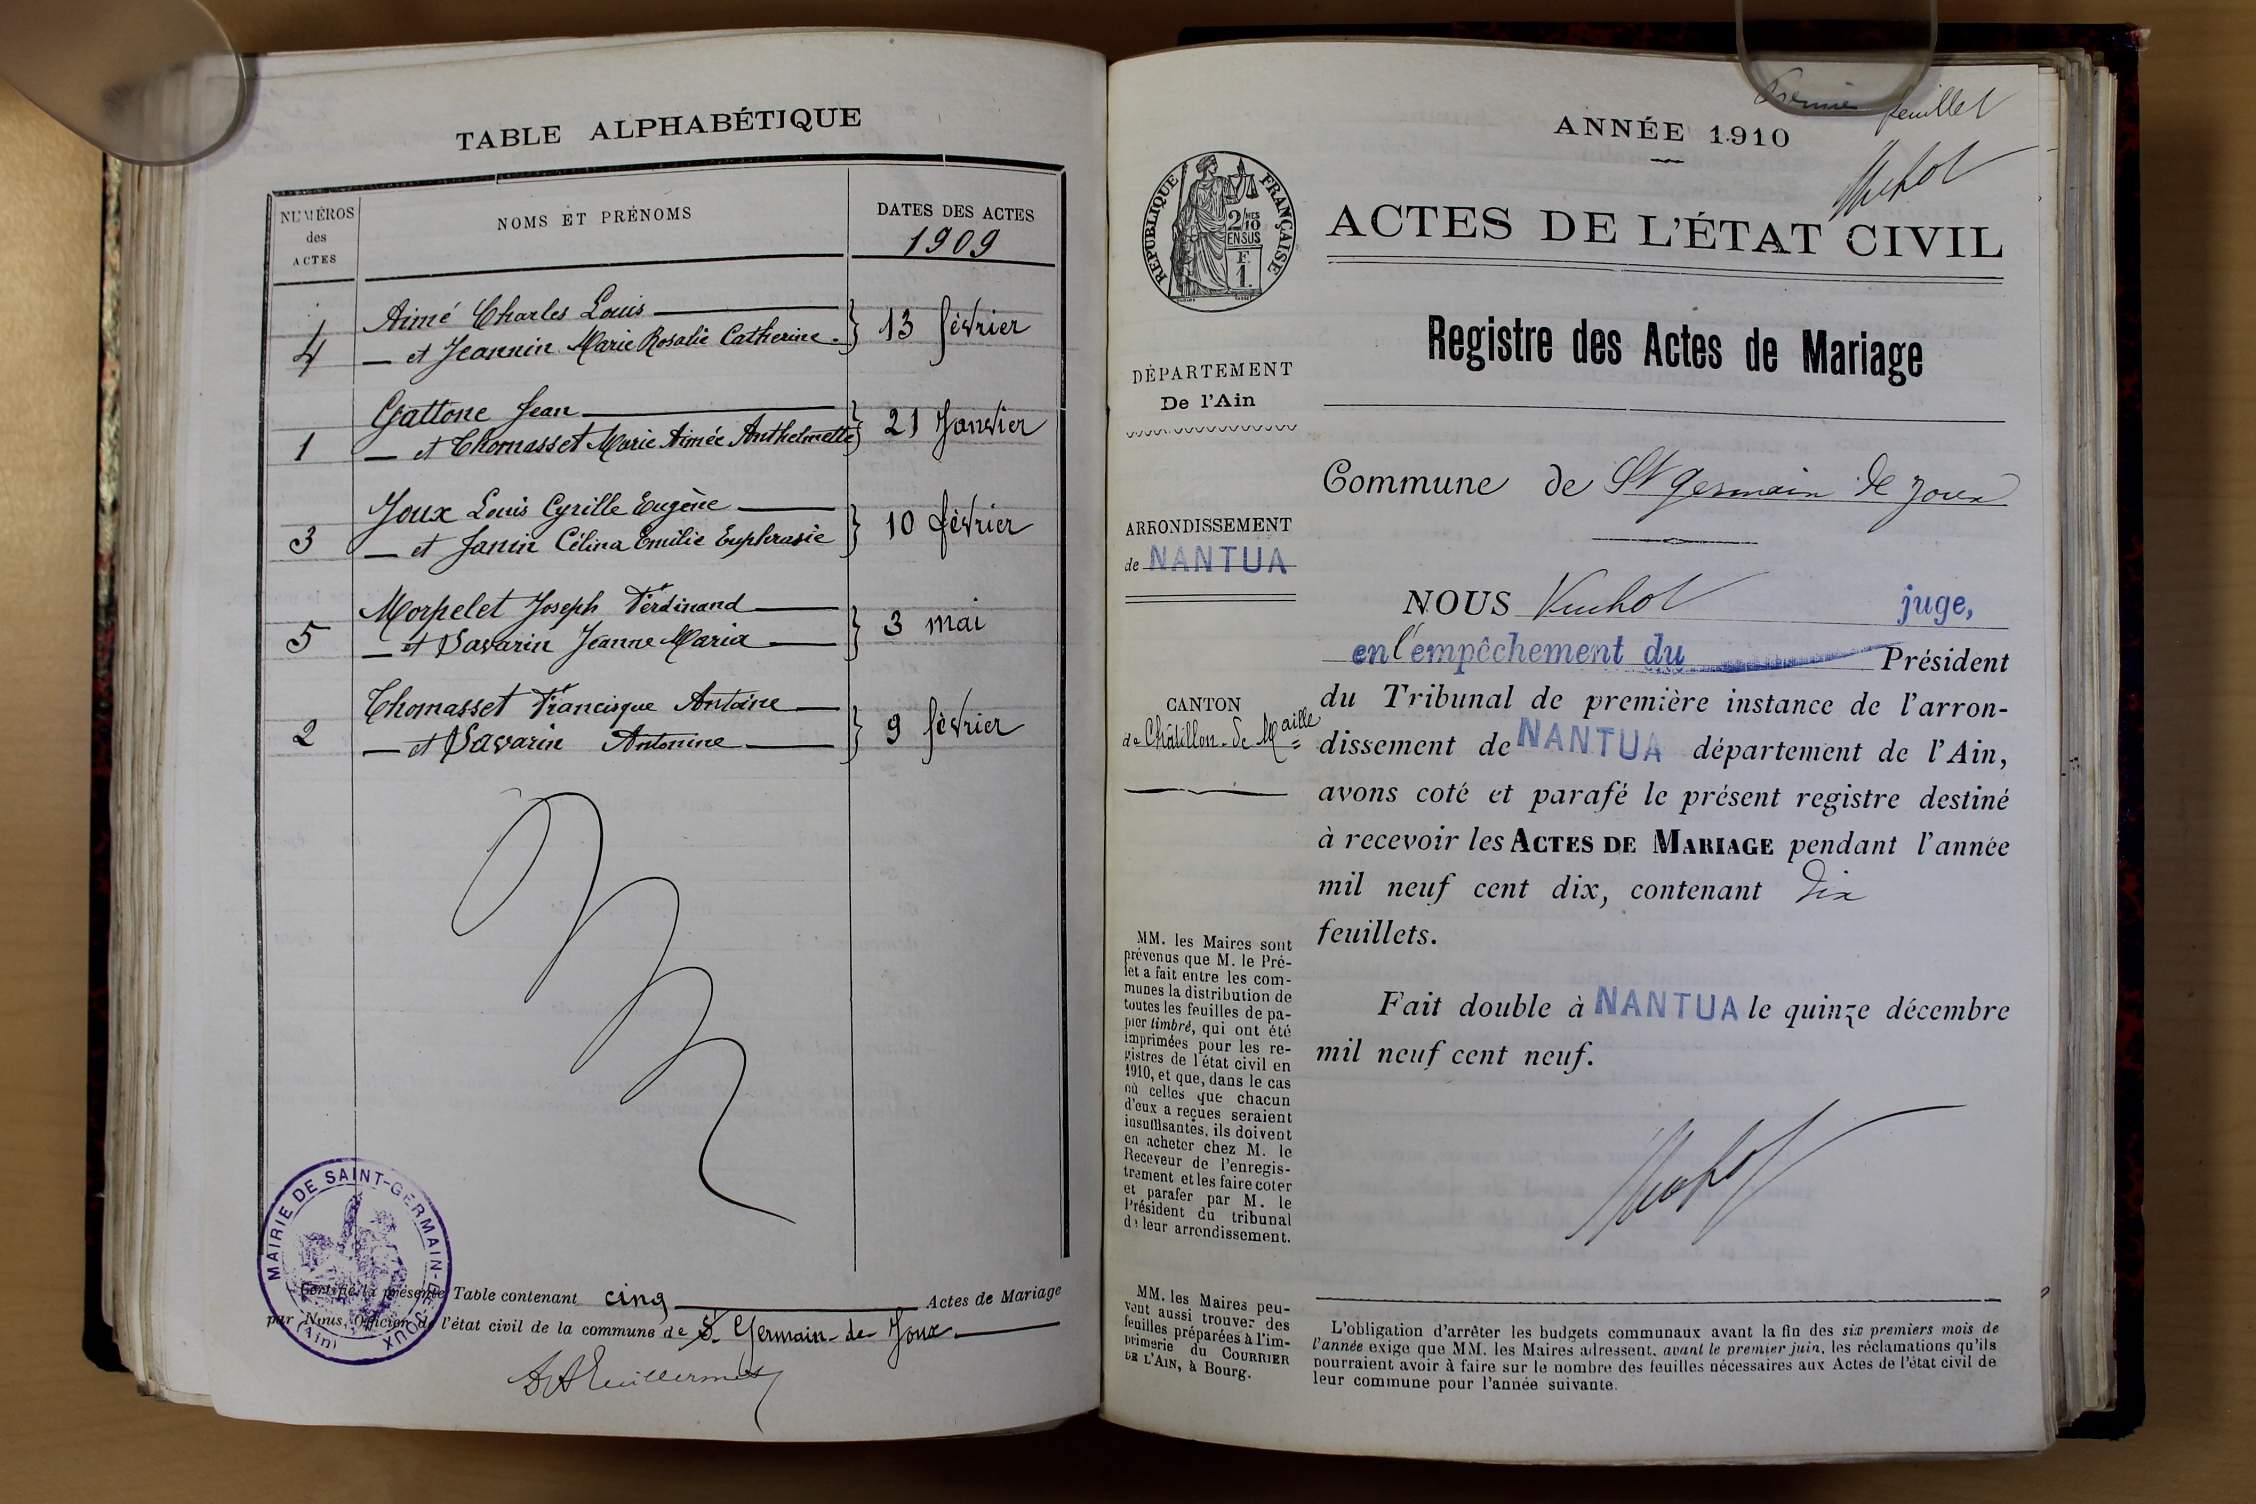 TABLE ALPHABÉTIQUE
NUMÉROS
des
ACTES
NOMS ET PRÉNOMS
DATES DES ACTES
1909
4
Aimé Charles Louis
et Jeannin Marie Rosalie Catherine
13 février
1
Gattone Jean
et Thomasset Marie Aimée Anthelmette
21 Janvier
3
Joux Louis Cyrille Eugène
et Janin Célina Emilie Euphrasie
10 février
5
Morpelet Joseph Ferdinand
et Savarin Jeanne Maria
3 mai
2
Thomasset Francisque Antoine
et Savarin Antonine
9 février
MAIRIE DE SAINT-GERMAIN-DE-JOUX
(Ain)
Certifié la présente Table contenant cinq Actes de Mariage
par Nous, Officier de l'état civil de la commune de St Germain-de-Joux
Premier feuillet
ANNÉE 1910
RÉPUBLIQUE FRANÇAISE
2/10
EN SUS
F.
1.
ACTES DE L'ÉTAT CIVIL
Registre des Actes de Mariage
DÉPARTEMENT
De l'Ain
Commune de St Germain de Joux
ARRONDISSEMENT
de NANTUA
CANTON
de Châtillon-de-Maille
NOUS juge,
en l'empêchement du Président
du Tribunal de première instance de l'arron-
dissement de NANTUA département de l'Ain,
avons coté et parafé le présent registre destiné
à recevoir les ACTES DE MARIAGE pendant l'année
mil neuf cent dix, contenant dix
feuillets.
Fait double à NANTUA le quinze décembre
mil neuf cent neuf.
MM. les Maires sont
prévenus que M. le Pré-
fet a fait entre les com-
munes la distribution de
toutes les feuilles de pa-
pier timbré, qui ont été
imprimées pour les re-
gistres de l'état civil en
1910, et que, dans le cas
où celles que chacun
d'eux a reçues seraient
insuffisantes, ils doivent
en acheter chez M. le
Receveur de l'enregis-
trement et les faire coter
et parafer par M. le
Président du tribunal
de leur arrondissement.
MM. les Maires peu-
vent aussi trouver des
feuilles préparées à l'im-
primerie du COURRIER
DE L'AIN, à Bourg.
L'obligation d'arrêter les budgets communaux avant la fin des six premiers mois de
l'année exige que MM. les Maires adressent, avant le premier juin, les réclamations qu'ils
pourraient avoir à faire sur le nombre des feuilles nécessaires aux Actes de l'état civil de
leur commune pour l'année suivante.